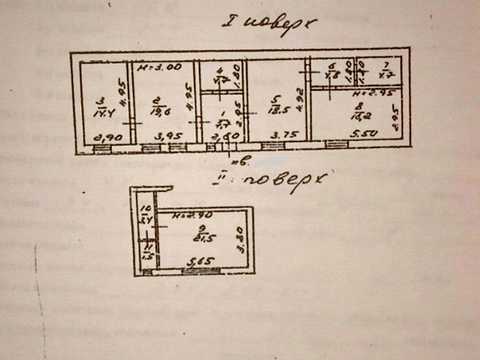 I поверх
H=3.00
3
14.4
4.95
2,90
2
19,6
4.95
3,95
4
1.80
1
2.95
2,60
5
18.5
4.92
3.75
6
4.8
1.80
1.80
7
4.7
H=2.95
8
2.95
5.50
кв.
II поверх
10
2.4
11
1.5
H=2.90
9
21,5
3.80
5,65